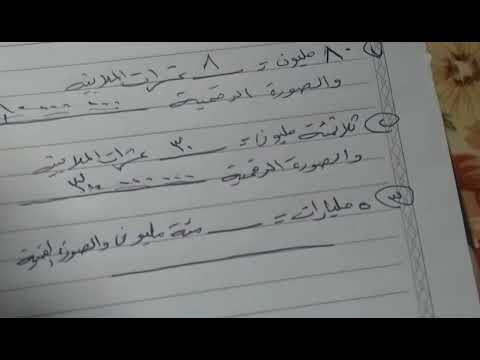 ٨٠ مليون = ٨ عشرات الملايين
والصورة الرقمية ٨٠ ٠٠٠ ٠٠٠
٢ ثلاثمئة مليون = ٣٠ عشرات الملايين
والصورة الرقمية ٣٠٠ ٠٠٠ ٠٠٠
٣ ٥ مليارات = ـــــ مئة مليون والصورة الرقمية